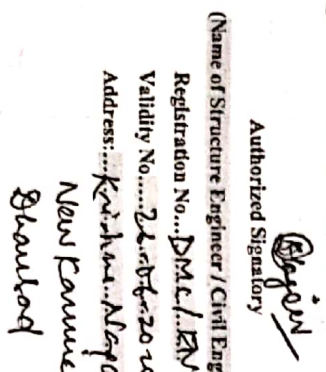 Authorized Signatory
(Name of Structure Engineer / Civil Eng
Registration No....DMC/.EN
Validity No.....
Address:...Krishna..Nag
New
Dhanbad